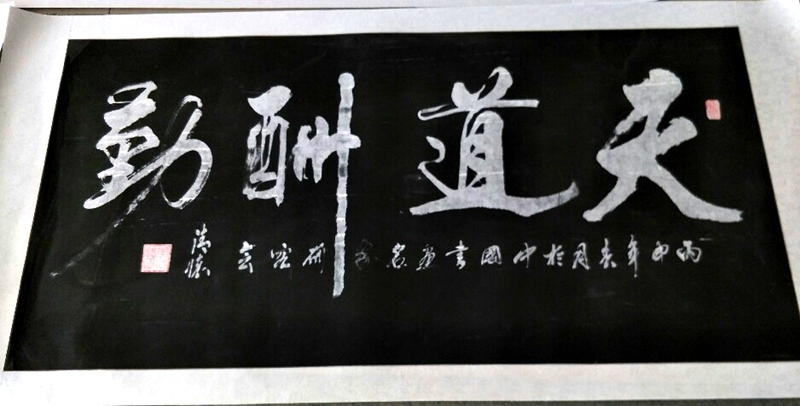 天道酬勤
丙申年春月於中國書畫名家研究會
清懷